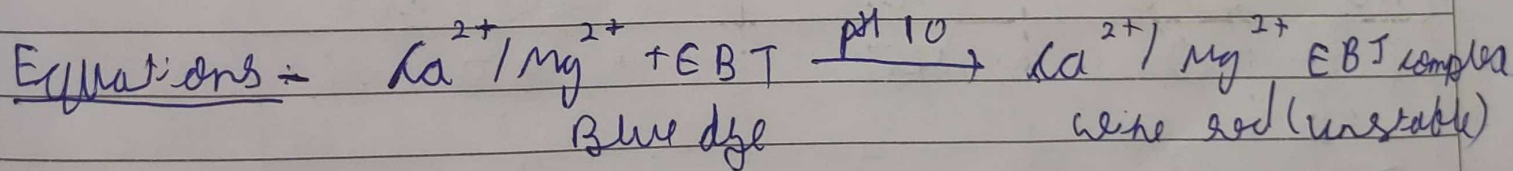 Equations :- Ca²⁺/Mg²⁺ + EBT pH 10 → Ca²⁺/Mg²⁺ EBT complex
Blue dye wine red (unstable)